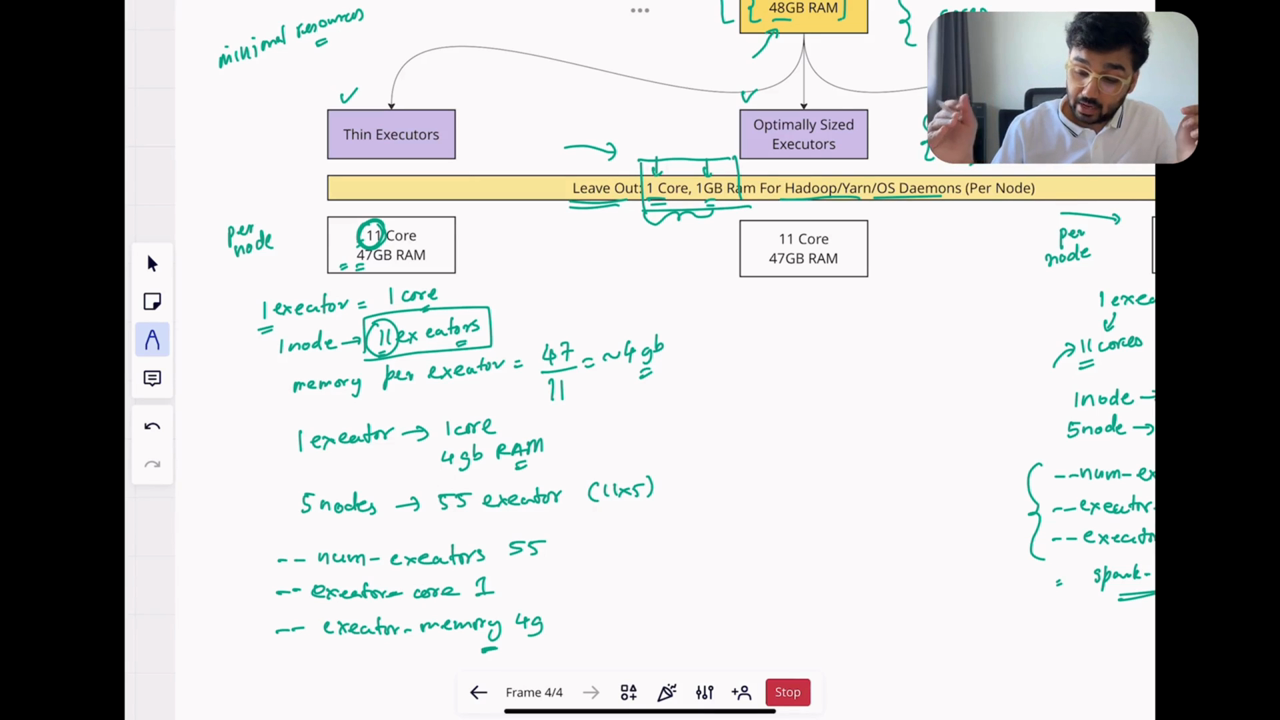 minimal resources
48GB RAM
Thin Executors
Optimally Sized
Executors
Leave Out: 1 Core, 1GB Ram For Hadoop/Yarn/OS Daemons (Per Node)
per
node
11 Core
47GB RAM
11 Core
47GB RAM
per
node
1 executor = 1 core
1 node → 11 executors
memory per executor = 47/11 = ~4gb
1 executor → 1 core
4gb RAM
5 nodes → 55 executor (11x5)
-- num-executors 55
-- executor-core 1
-- executor-memory 4g
1 exec
11 cores
1 node →
5 node →
--num-ex
--executor-
--executo
= spark-
Frame 4/4
Stop